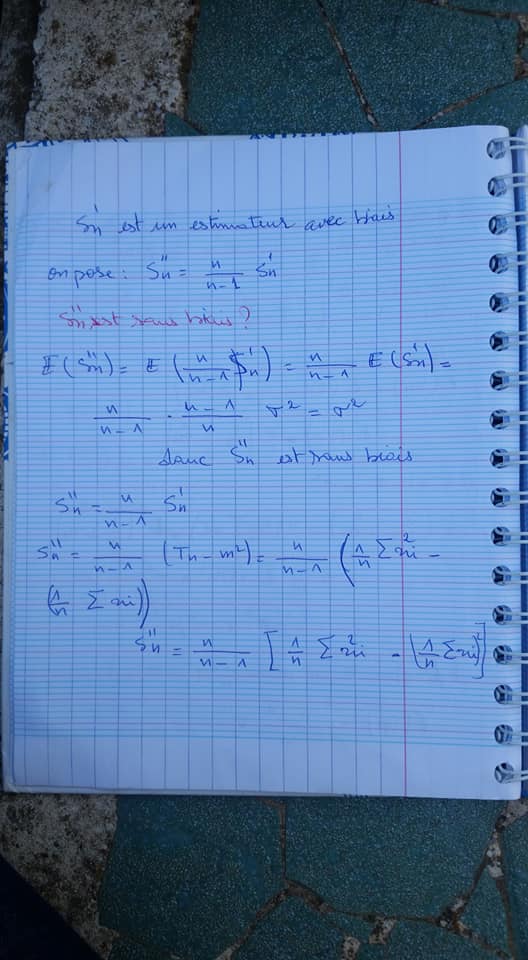 S'n est un estimateur avec biais
on pose : S''n = n/(n-1) S'n
S''n est sans biais ?
E(S''n) = E(n/(n-1) S'n) = n/(n-1) E(S'n) =
n/(n-1) · (n-1)/n σ² = σ²
donc S''n est sans biais
S''n = n/(n-1) S'n
S''n = n/(n-1) (Tn - m²) = n/(n-1) (1/n Σ xi² -
(1/n Σ xi))
S''n = n/(n-1) [1/n Σ xi² - (1/n Σ xi)²]